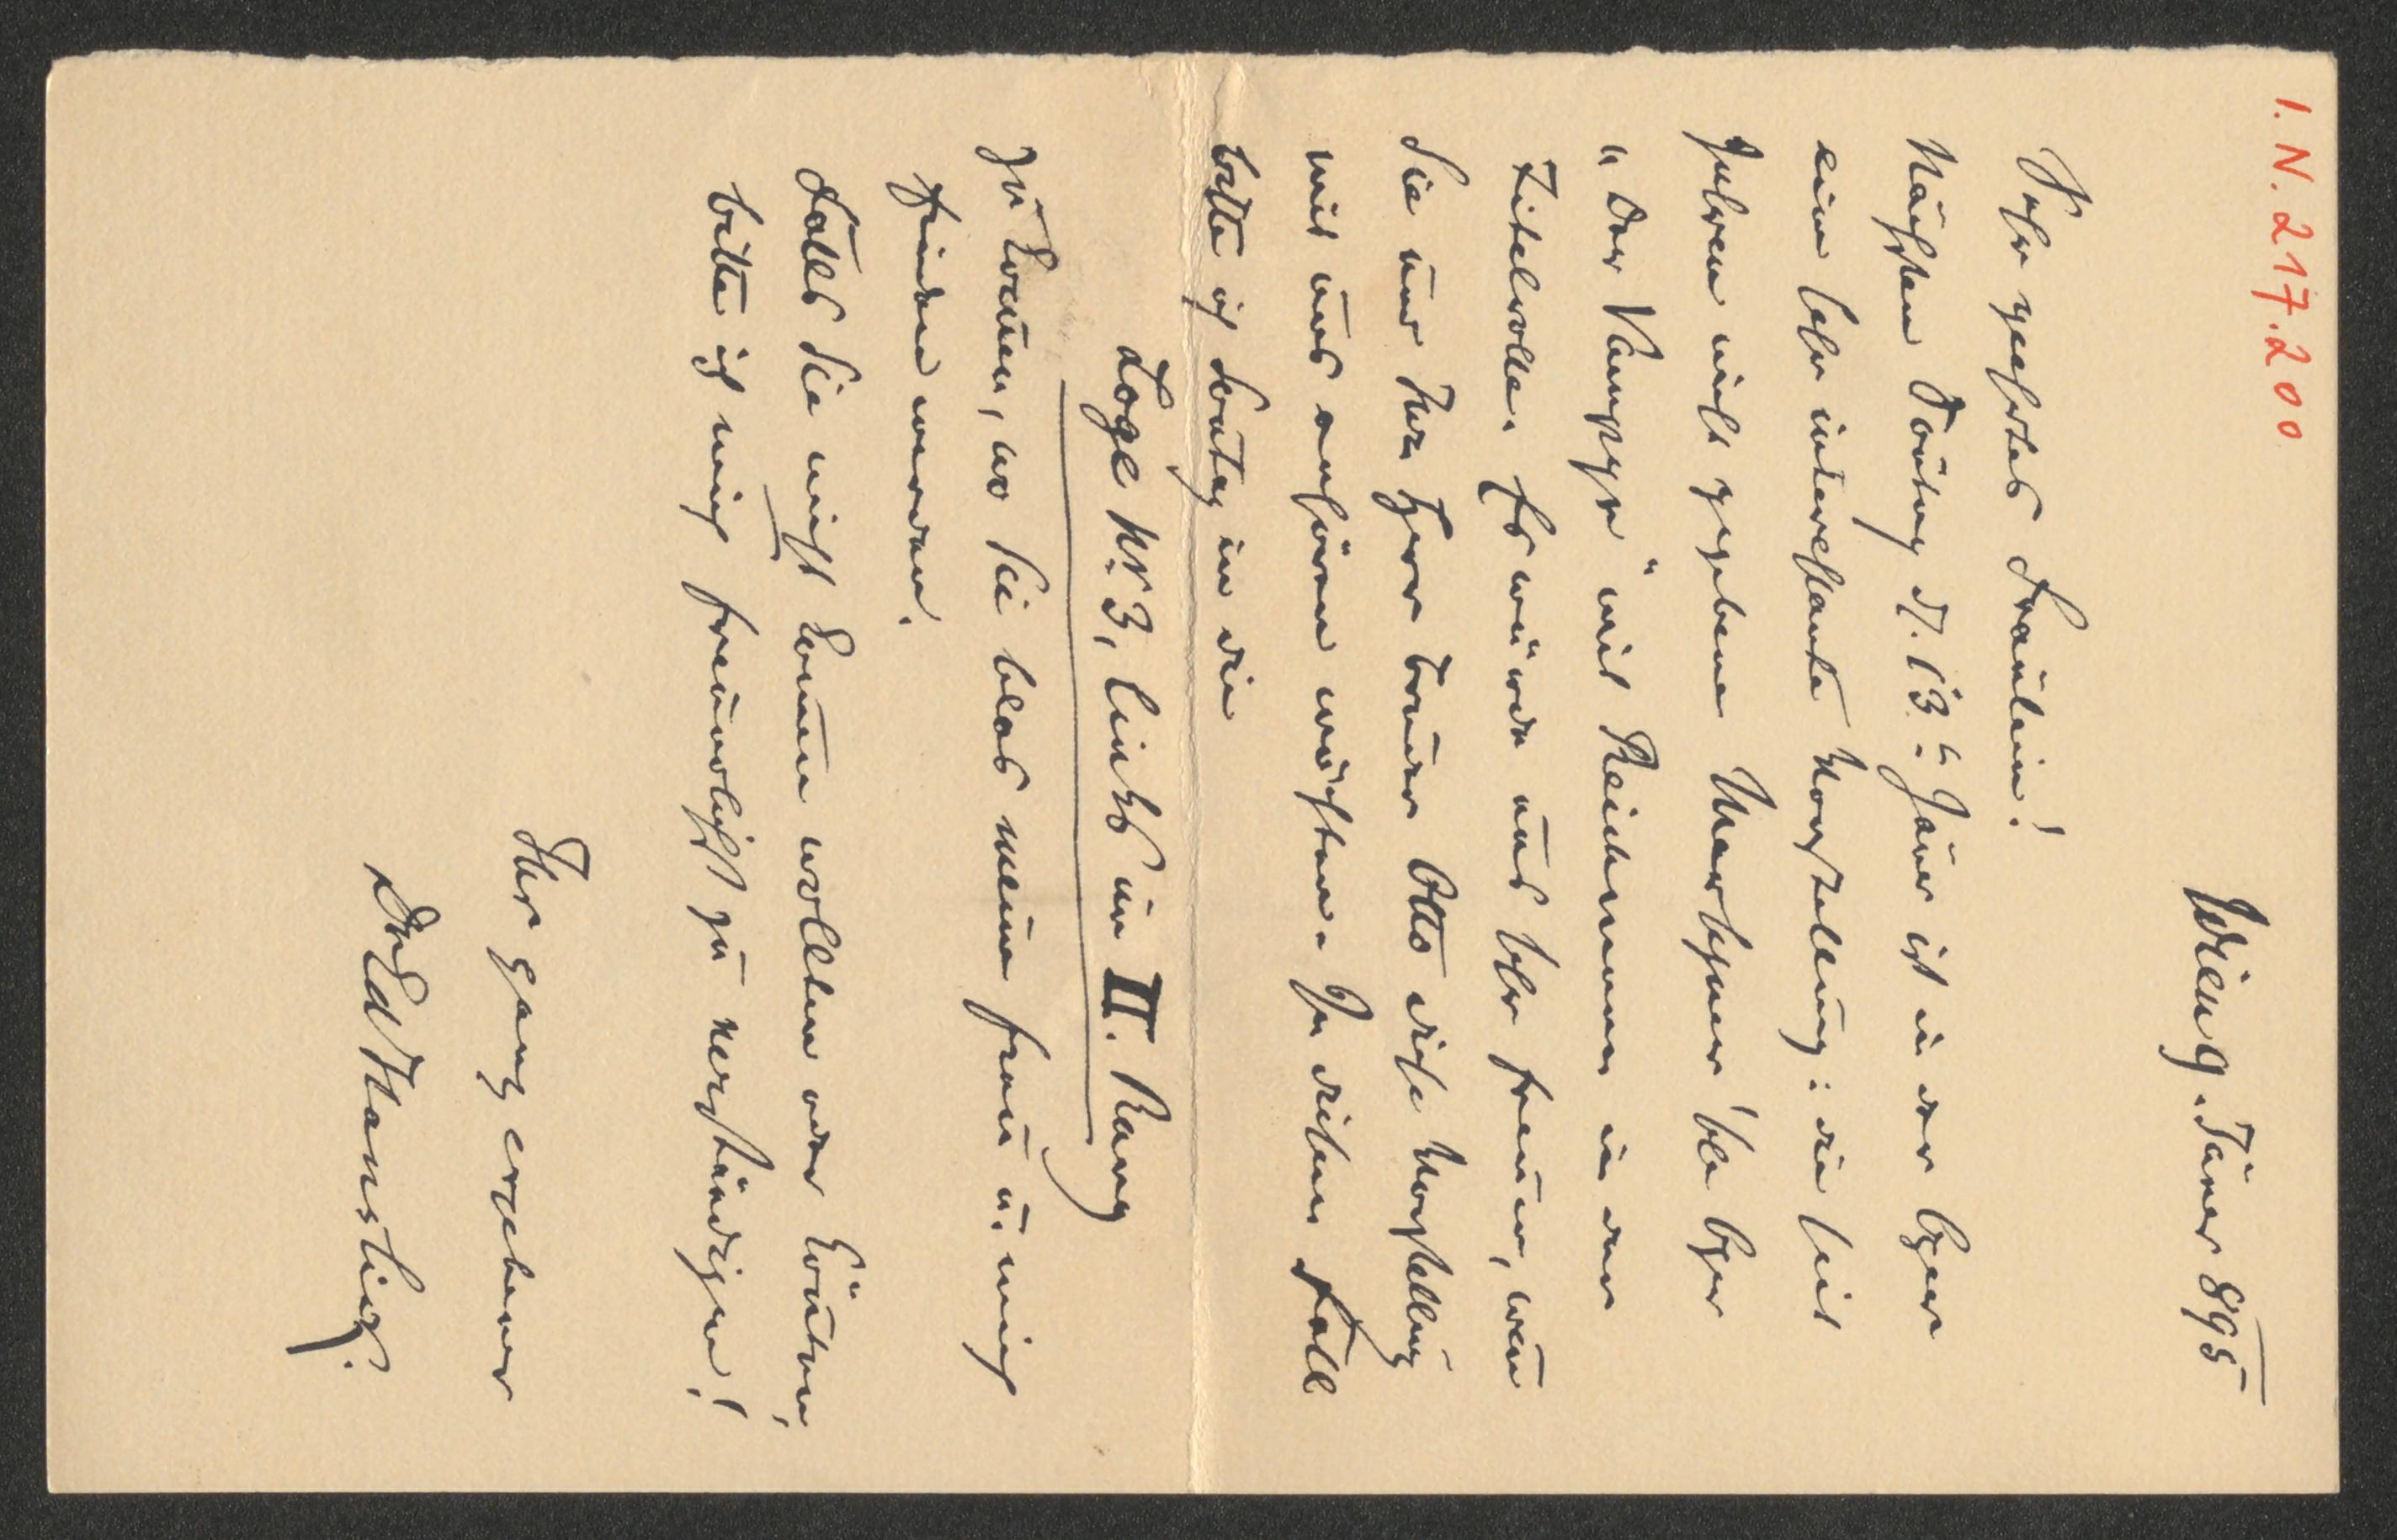 I.N. 217.200
Wien 9. Jäner 895
Sehr geehrtes Fräulein!
Nächsten Sontag d. 13. Jäner ist in der Oper
eine sehr interessante Vorstellung: die seit
Jahren nicht gegebene Marschner'sche Oper
„Der Vampyr" mit Reichmann in der
Titelrolle. Es würde uns sehr freuen, wen
Sie und Ihr Herr Bruder Otto diese Vorstellung
mit uns anhören möchten. In diesem Falle
bitte ich Sontag in die
Loge Nr. 3, links im II. Rang
zu komen, wo Sie blos meine Frau u. mich
finden werden.
Falls Sie nicht komen wollen oder könten,
bitte ich mich freundlichst zu verständigen!
Ihr ganz ergebener
Dr Ed Hanslick.